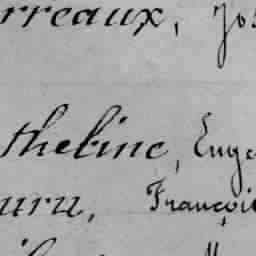 rreaux, Jos
theline, Euge
uru, Françoi